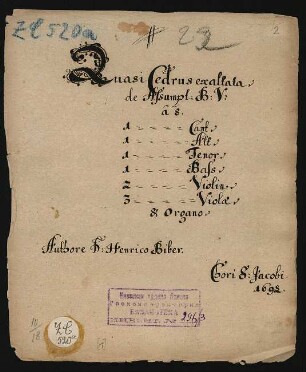 ZC 520a # 29 2
Quasi Cedrus exaltata
de Assumpt: B: V:
à 8.
1 Cant
1 Alt
1 Tenor
1 Bass
2 Violin
3 Viole
& Organo
Authore D: Henrico Biber.
Chori S: Jacobi
1698
ZC
520a